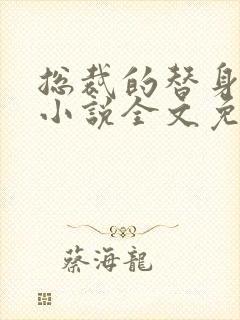 总裁的替身
小说全文免
蔡海龍